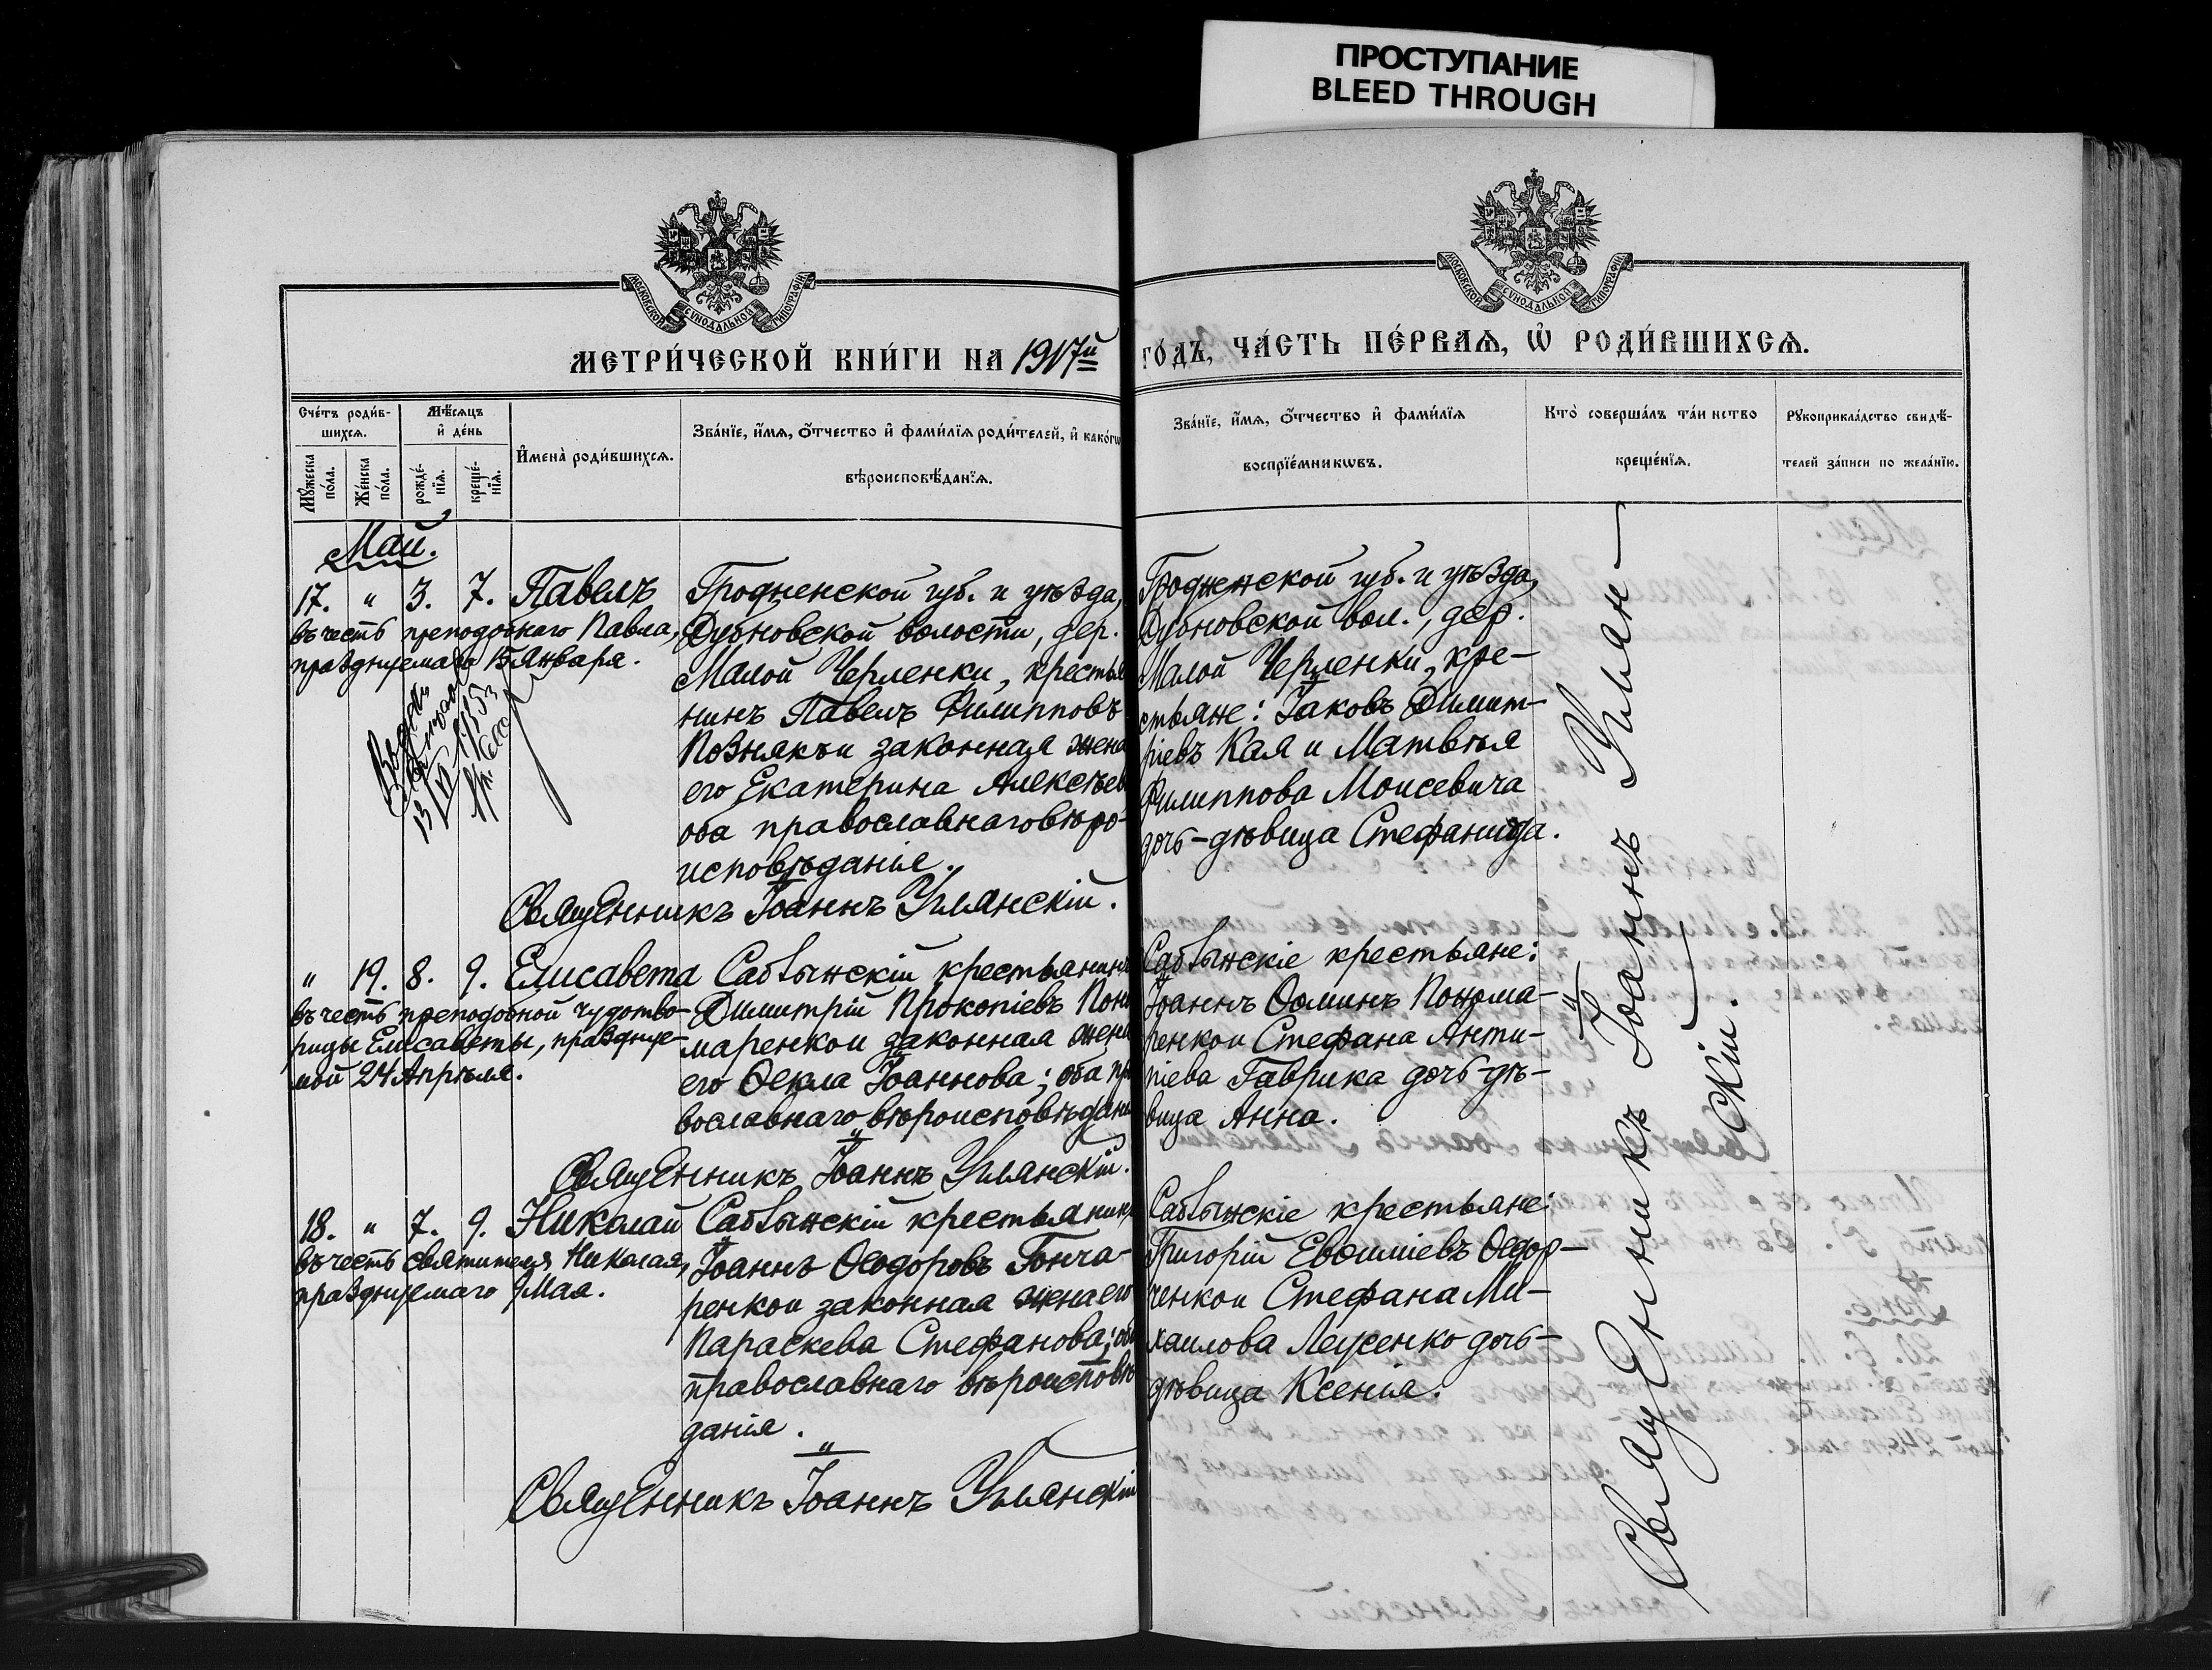 ПРОСТУПАНИЕ
BLEED THROUGH
МОСКОВСКОЙ СУНОДАЛЬНОЙ ТИПОГРАФІИ
МОСКОВСКОЙ СУНОДАЛЬНОЙ ТИПОГРАФІИ
МЕТРИ́ЧЕСКОЙ КНИ́ГИ НА 1917й
ГО́ДЪ, ЧА́СТЬ ПЕ́РВАѦ, Ѡ҆ РОДИ́ВШИХСѦ.
Сче́тъ роди́в-
шихсѧ.
Мꙋ́жеска по́ла.
Же́нска по́ла.
Мѣ́сѧцъ
и҆ де́нь
рожде́-
нїѧ.
креще́-
нїѧ.
И҆мена̀ роди́вшихсѧ.
Зва́нїе, и҆́мѧ, ѻ҆́тчество и҆ фами́лїѧ роди́телей, и҆ како́гѡ
вѣроисповѣ́данїѧ.
Зва́нїе, и҆́мѧ, ѻ҆́тчество и҆ фами́лїѧ
воспрїе́мникѡвъ.
Кто̀ соверша́лъ та́инство
креще́нїѧ.
Рꙋкоприкла́дство свидѣ́-
телей за́писи по жела́нїю.
Май.
17. " 3. 7. Павелъ
въ честь преподобнаго Павла,
празднуемаго 15 Января.
Гродненской губ. и уѣзда,
Дубновской волости, дер.
Малой Черленки, крестья
нинъ Павелъ Филипповъ
Познякъ и законная жена
его Екатерина Алексѣев
оба православнаго вѣро-
исповѣданія.
Священникъ Іоаннъ Улянскій.
Гродненской губ. и уѣзда,
Дубновской вол., дер.
Малой Черленки, кре-
стьяне: Іаковъ Димит-
ріевъ Кая и Матвѣя
Филиппова Моисевича
дочь-дѣвица Стефанида.
" 19. 8. 9. Елисавета
въ честь преподобной чудотво-
рицы Елисаветы, праздну-
мой 24 Апрѣля.
Саблынскій крестьянинъ
Димитрій Прокопіевъ Поно
маренко и законная жена
его Ѳекла Іоаннова; оба пра
вославнаго вѣроисповѣдані
Священникъ Іоаннъ Улянскій.
Саблынскіе крестьяне:
Іоаннъ Ѳоминъ Понома-
ренко и Стефана Анти-
піева Гаврика дочь-дѣ-
вица Анна.
18. " 7. 9. Николай
въ честь святителя Николая,
празднуемаго 9 Мая.
Саблынскій крестьянинъ
Іоаннъ Ѳеодоровъ Гонча-
ренко и законная жена его
Параскева Стефанова; оба
православнаго вѣроисповѣ
данія.
Священникъ Іоаннъ Улянскій
Саблынскіе крестьяне:
Григорій Евѳиміевъ Ѳедор-
ченко и Стефана Ми-
хаилова Леусенко дочь-
дѣвица Ксенія.
Священникъ Іоаннъ Улян-
скій.